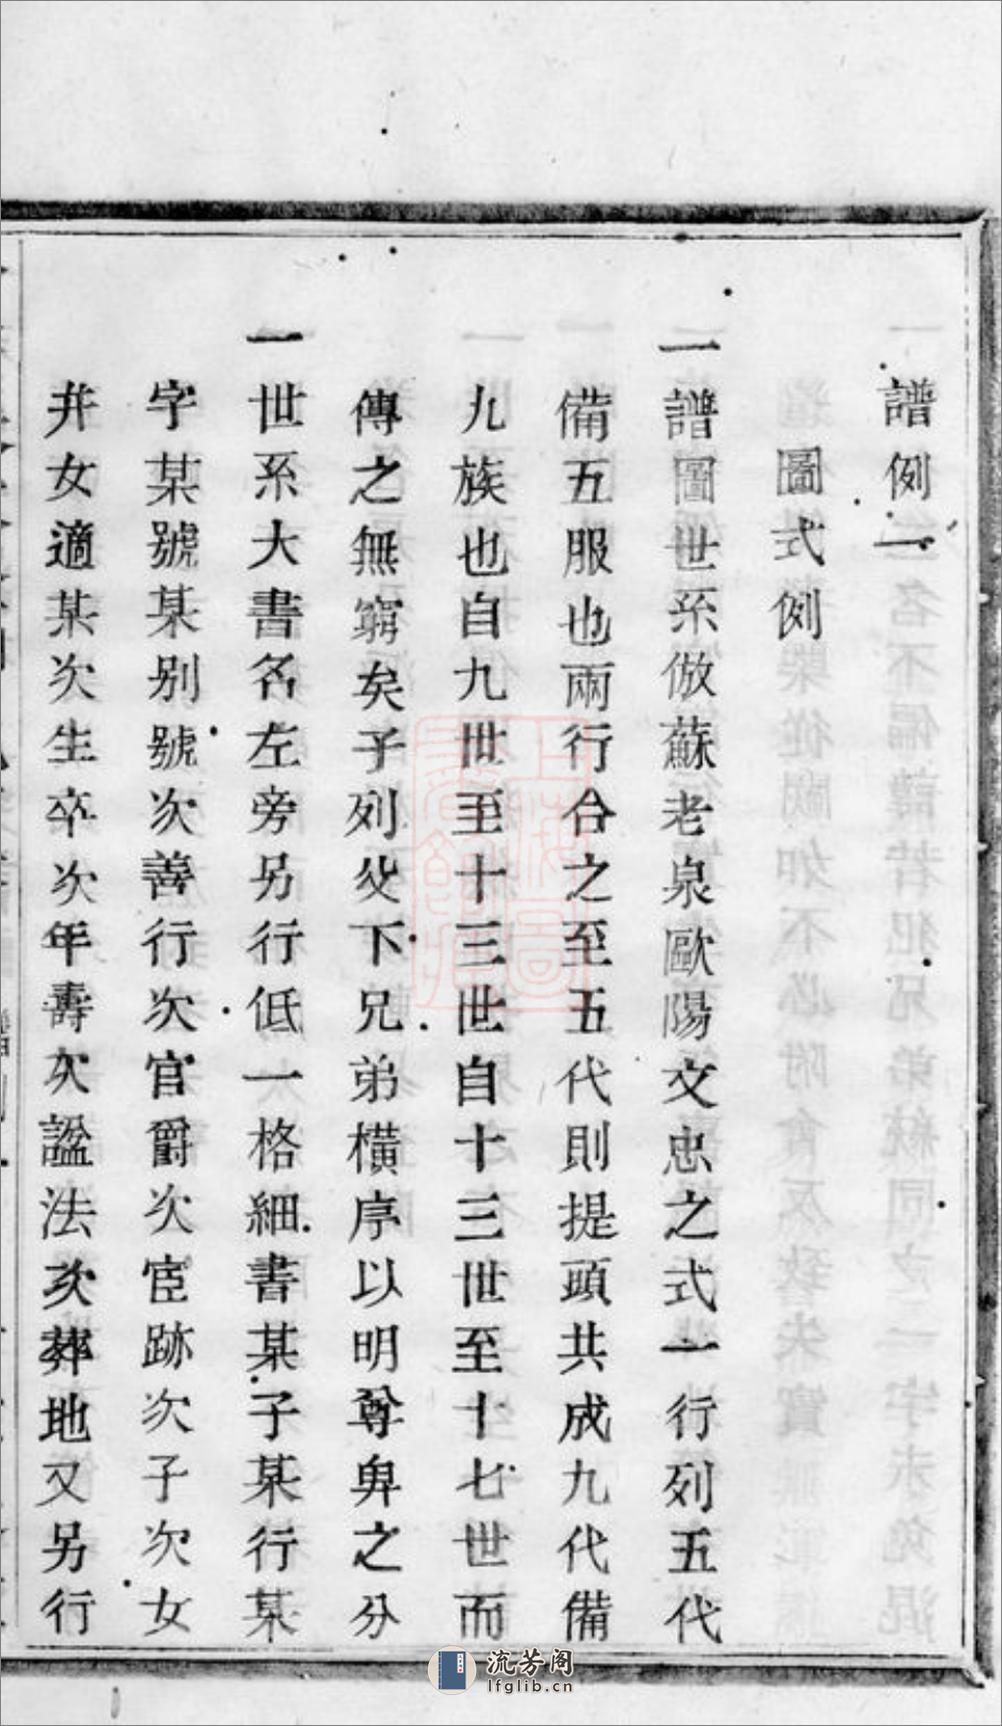 譜例一
圖式例
一譜圖世系倣蘇老泉歐陽文忠之式一行列五代
備五服也兩行合之至五代則提頭共成九代備
九族也自九世至十三世自十三世至十七世而
傳之無窮矣子列父下兄弟橫序以明尊卑之分
一世系大書名左旁另行低一格細書某子某行某
字某號某别號次善行次官爵次宦跡次子次女
并女適某次生卒次年壽次諡法次葬地又另行
上海圖書館藏
流芳阁
lfglib.cn